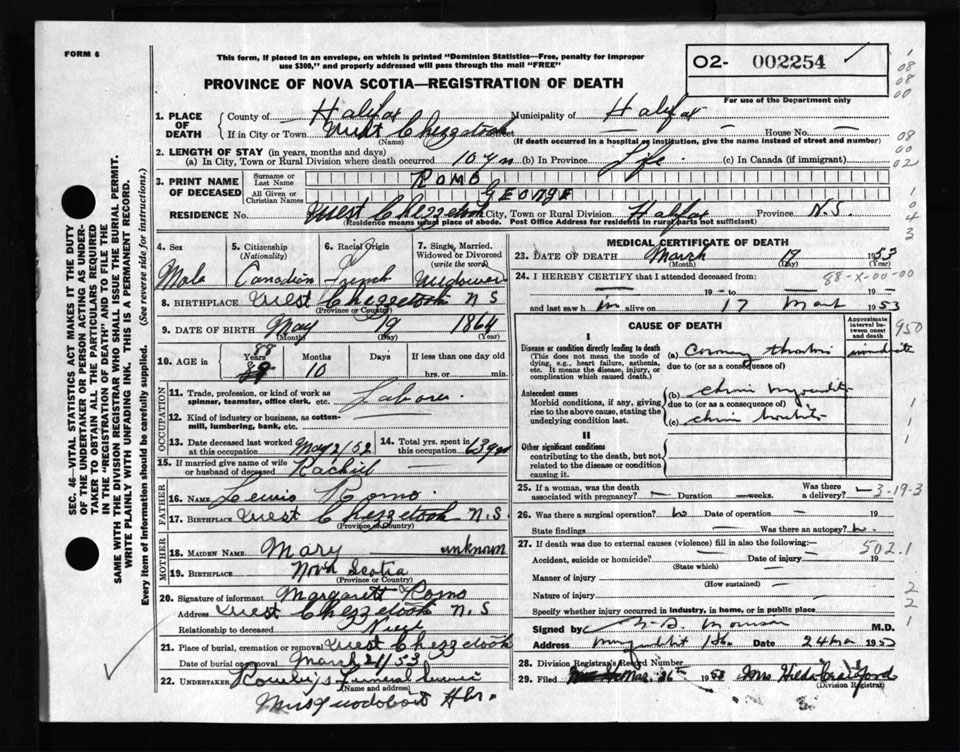 FORM 6
This form, if placed in an envelope, on which is printed "Dominion Statistics—Free, penalty for improper
use $300," and properly addressed will pass through the mail "FREE"
O2- 002254
PROVINCE OF NOVA SCOTIA—REGISTRATION OF DEATH
For use of the Department only
1. PLACE OF DEATH County of Halifax Municipality of Halifax
If in City or Town West Chezzetcook Street — House No. —
(Name) (If death occurred in a hospital or institution, give the name instead of street and number)
2. LENGTH OF STAY (in years, months and days)
(a) In City, Town or Rural Division where death occurred 10 yrs (b) In Province Life. (c) In Canada (if immigrant)
3. PRINT NAME OF DECEASED Surname or Last Name ROMO
All Given or Christian Names GEORGE
RESIDENCE No. West Chezzetcook City, Town or Rural Division Halifax Province N.S.
(Residence means usual place of abode. Post Office Address for residents in rural parts not sufficient)
4. Sex Male
5. Citizenship (Nationality) Canadian
6. Racial Origin French
7. Single, Married, Widowed or Divorced (write the word) Widower
8. BIRTHPLACE West Chezzetcook N S
(Province or Country)
9. DATE OF BIRTH May 19 1864
(Month) (Day) (Year)
10. AGE in Years 88 89 Months 10 Days If less than one day old hrs. or min.
OCCUPATION
11. Trade, profession, or kind of work as spinner, teamster, office clerk, etc. Laborer
12. Kind of industry or business, as cotton-mill, lumbering, bank, etc.
13. Date deceased last worked at this occupation May 2/52 14. Total yrs. spent in this occupation 63 yrs
15. If married give name of wife or husband of deceased Rachiel
FATHER
16. NAME Lewis Romo.
17. BIRTHPLACE West Chezzetcook N.S.
(Province or Country)
MOTHER
18. MAIDEN NAME Mary unknown
19. BIRTHPLACE Nova Scotia
(Province or Country)
20. Signature of informant Margarett Romo
Address West Chezzetcook N.S
Relationship to deceased
21. Place of burial, cremation or removal West Chezzetcook
Date of burial or removal March 21/53
22. UNDERTAKER Funeral Service
(Name and address)
Musquodoboit Hbr.
MEDICAL CERTIFICATE OF DEATH
23. DATE OF DEATH March 17 1953
(Month) (Day) (Year)
88-X-00-00
24. I HEREBY CERTIFY that I attended deceased from:
— 19 — to — 19 —
and last saw h im alive on 17 Mar 1953
CAUSE OF DEATH
Approximate interval between onset and death
950
I
Disease or condition directly leading to death
(This does not mean the mode of dying, e.g., heart failure, asthenia, etc. It means the disease, injury, or complication which caused death.)
(a) Coronary
due to (or as a consequence of)
Antecedent causes
Morbid conditions, if any, giving rise to the above cause, stating the underlying condition last.
(b)
due to (or as a consequence of)
(c)
II
Other significant conditions
contributing to the death, but not related to the disease or condition causing it.
25. If a woman, was the death associated with pregnancy? — Duration — weeks. Was there a delivery? —
3-19-3
26. Was there a surgical operation? No Date of operation —
State findings — Was there an autopsy? No.
27. If death was due to external causes (violence) fill in also the following:—
502.1
Accident, suicide or homicide? — Date of injury — 19
(State which)
Manner of injury
(How sustained)
Nature of injury
Specify whether injury occurred in industry, in home, or in public place
Signed by M.D.
Address Date 24 Mar 1953
28. Division Registrar's Record Number
29. Filed Mar. 26th 1953 Mrs Hilda Crawford
(Division Registrar)
SEC. 46—VITAL STATISTICS ACT MAKES IT THE DUTY
OF THE UNDERTAKER OR PERSON ACTING AS UNDER-
TAKER TO OBTAIN ALL THE PARTICULARS REQUIRED
IN THE "REGISTRATION OF DEATH" AND TO FILE THE
SAME WITH THE DIVISION REGISTRAR WHO SHALL ISSUE THE BURIAL PERMIT.
WRITE PLAINLY WITH UNFADING INK. THIS IS A PERMANENT RECORD.
Every item of information should be carefully supplied. (See reverse side for instructions.)